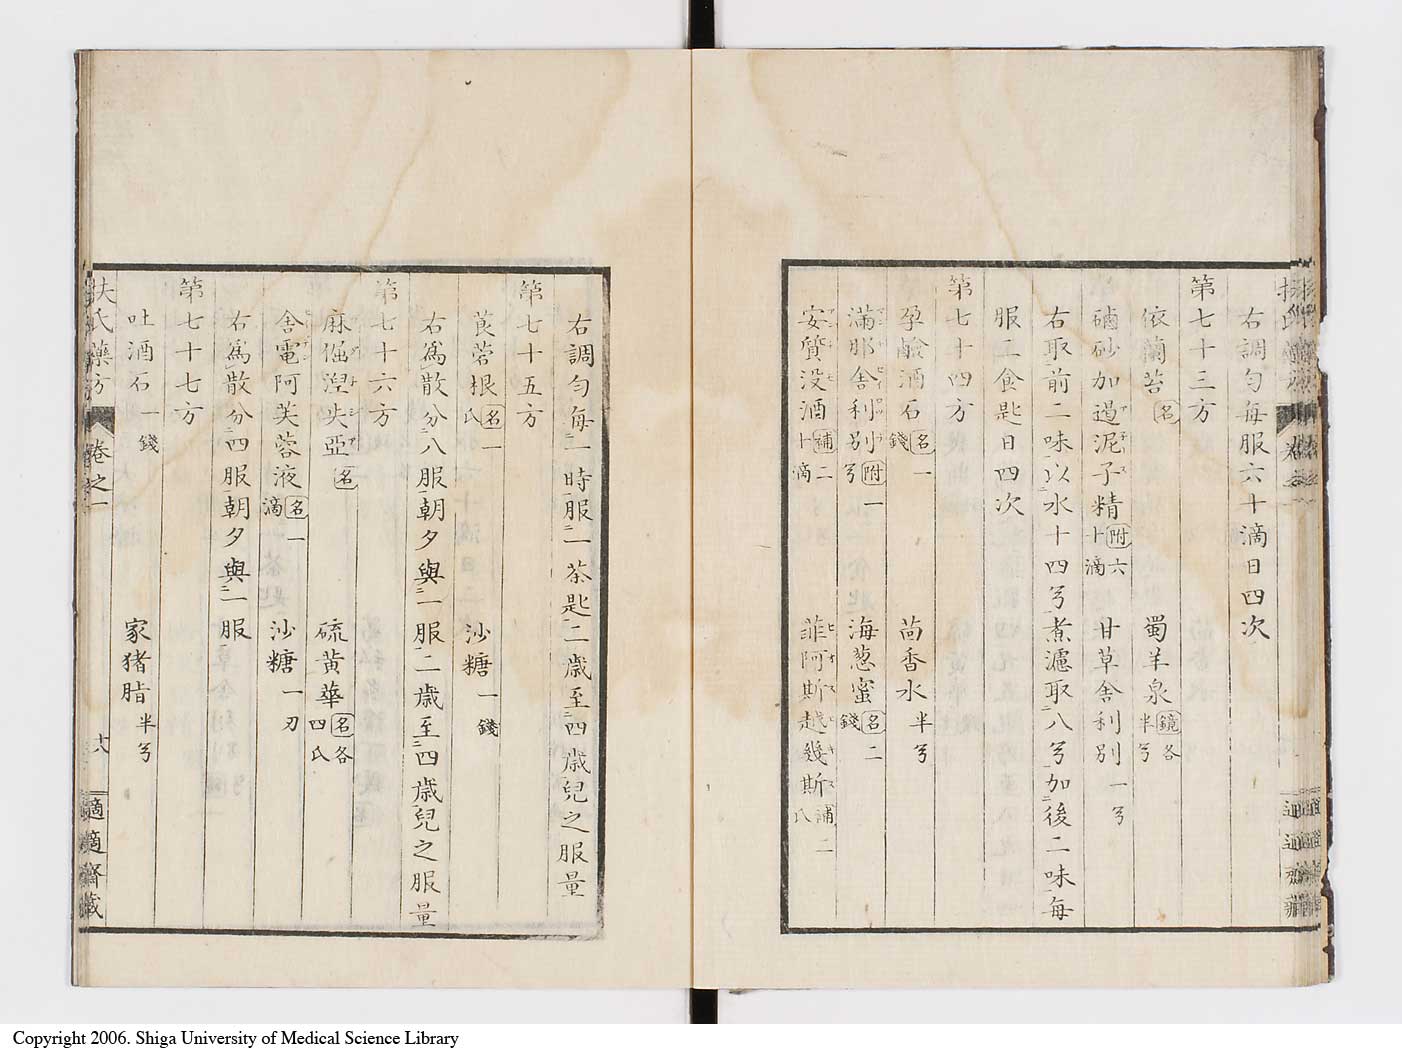 右調匀毎服六十滴日四次
第七十三方
依蘭苔 名 蜀羊泉 鏡 各半兮
磠砂加過泥子精 附 六十滴 甘草舎利別 一兮
右取前二味以水十四兮煮濾取八兮加後二味毎
服工食匙日四次
第七十四方
孕鹼酒石 名 一錢 茴香水 半兮
満那舎利別 附 一兮 海葱蜜 名 二錢
安質没酒 補 二十滴 菲阿斯越幾斯 補 二氏
右調匀毎一時服一茶匙二歳至四歳兒之服量
第七十五方
莨菪根 名 一氏 沙糖 一錢
右為散分八服朝夕與一服二歳至四歳兒之服量
第七十六方
麻倔涅失亞 名 硫黄華 名 各四氏
舎電阿芙蓉液 名 一滴 沙糖 一刃
右為散分四服朝夕與一服
第七十七方
吐酒石 一錢 家猪脂 半兮
扶氏藥方 卷之一 十八 適適齋藏
Copyright 2006. Shiga University of Medical Science Library